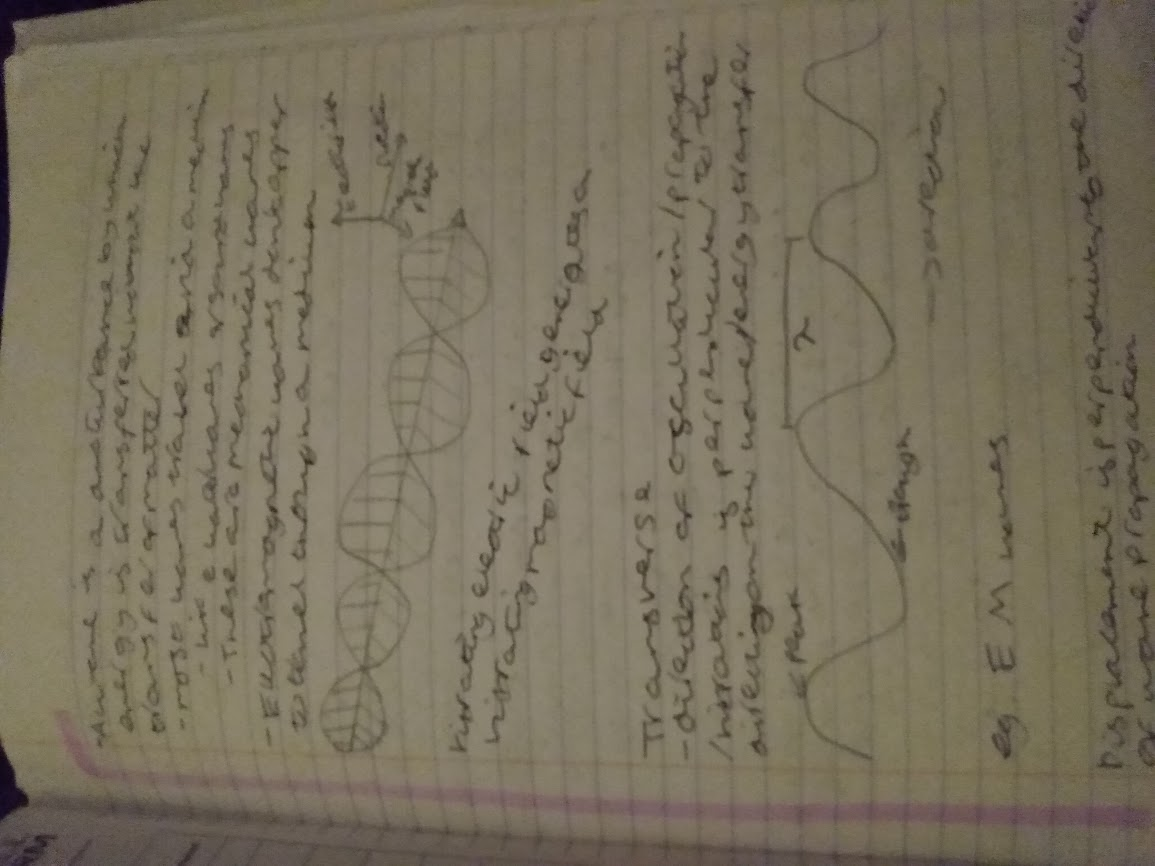 - A wave is a disturbance by which
energy is transferred without the
transfer of matter
- most waves travel via a medium
- like water waves or sound waves
- These are mechanical waves
- Electromagnetic waves don't
to travel through a medium
vibrating electric field generates a
vibrating magnetic field
Transverse
- direction of
is perpendicular to the
direction the wave/energy transfer
peak
λ
trough
→ direction
eg. EM waves
Displacement is perpendicular to the
of wave propagation